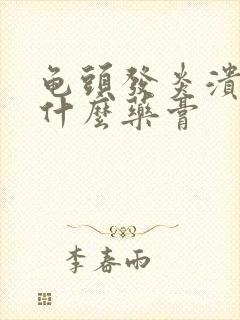 龟頭發炎潰
什麼藥膏
李春雨